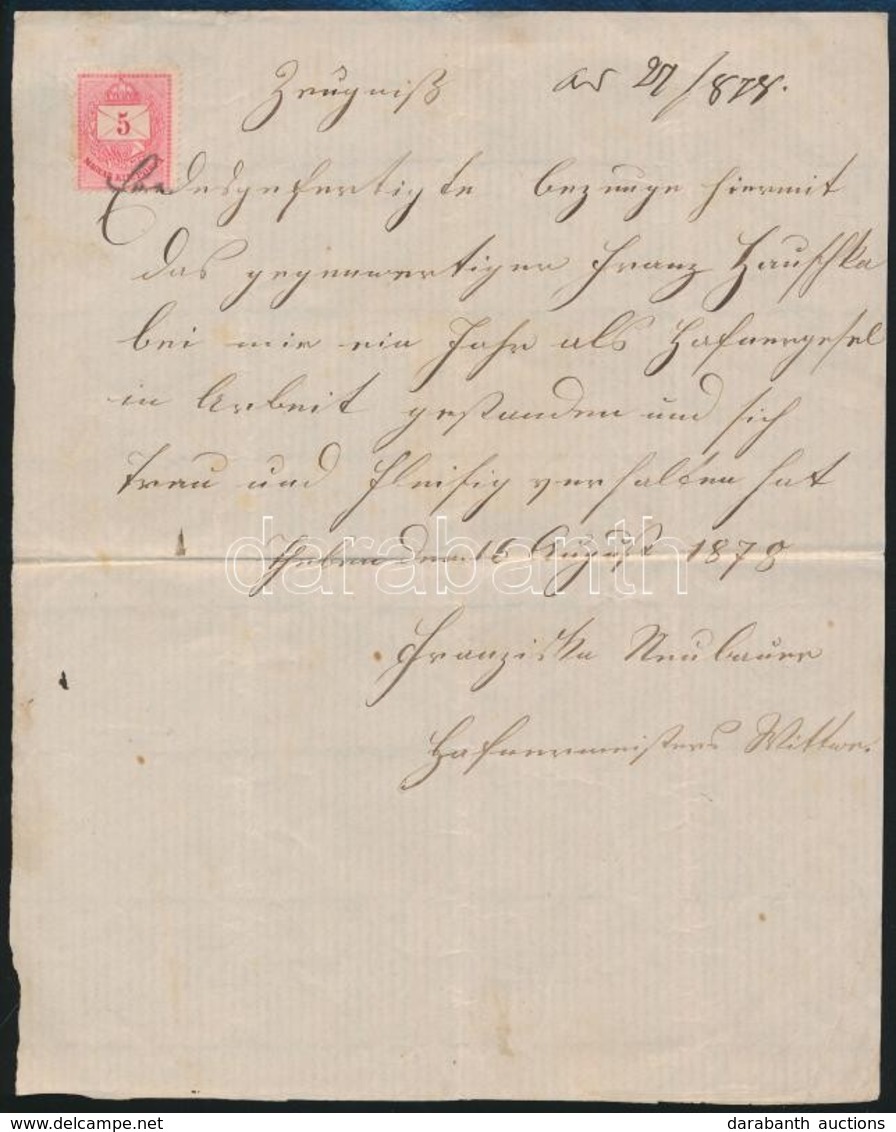 Zeugniß ad 27/878.
5
MAGYAR KIR. POSTA
Endesgefertigte bezeuge hiermit
das gegenwertiger Franz Hauschka
bei mir ein Jahr als Hafnergesel
in Arbeit gestanden und sich
Treu und Fleisig verhalten hat
Theben den 16 August 1878
Franziska Neubauer
Hafnermeisters Wittwe.
darabanth
delcampe.net
darabanth auctions